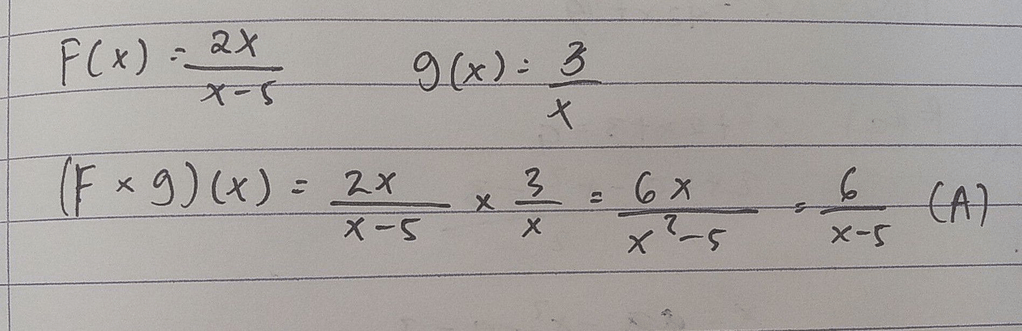 F(x) = 2x/x-5    g(x) = 3/x
(F × g)(x) = 2x/x-5 × 3/x = 6x/x²-5 = 6/x-5 (A)